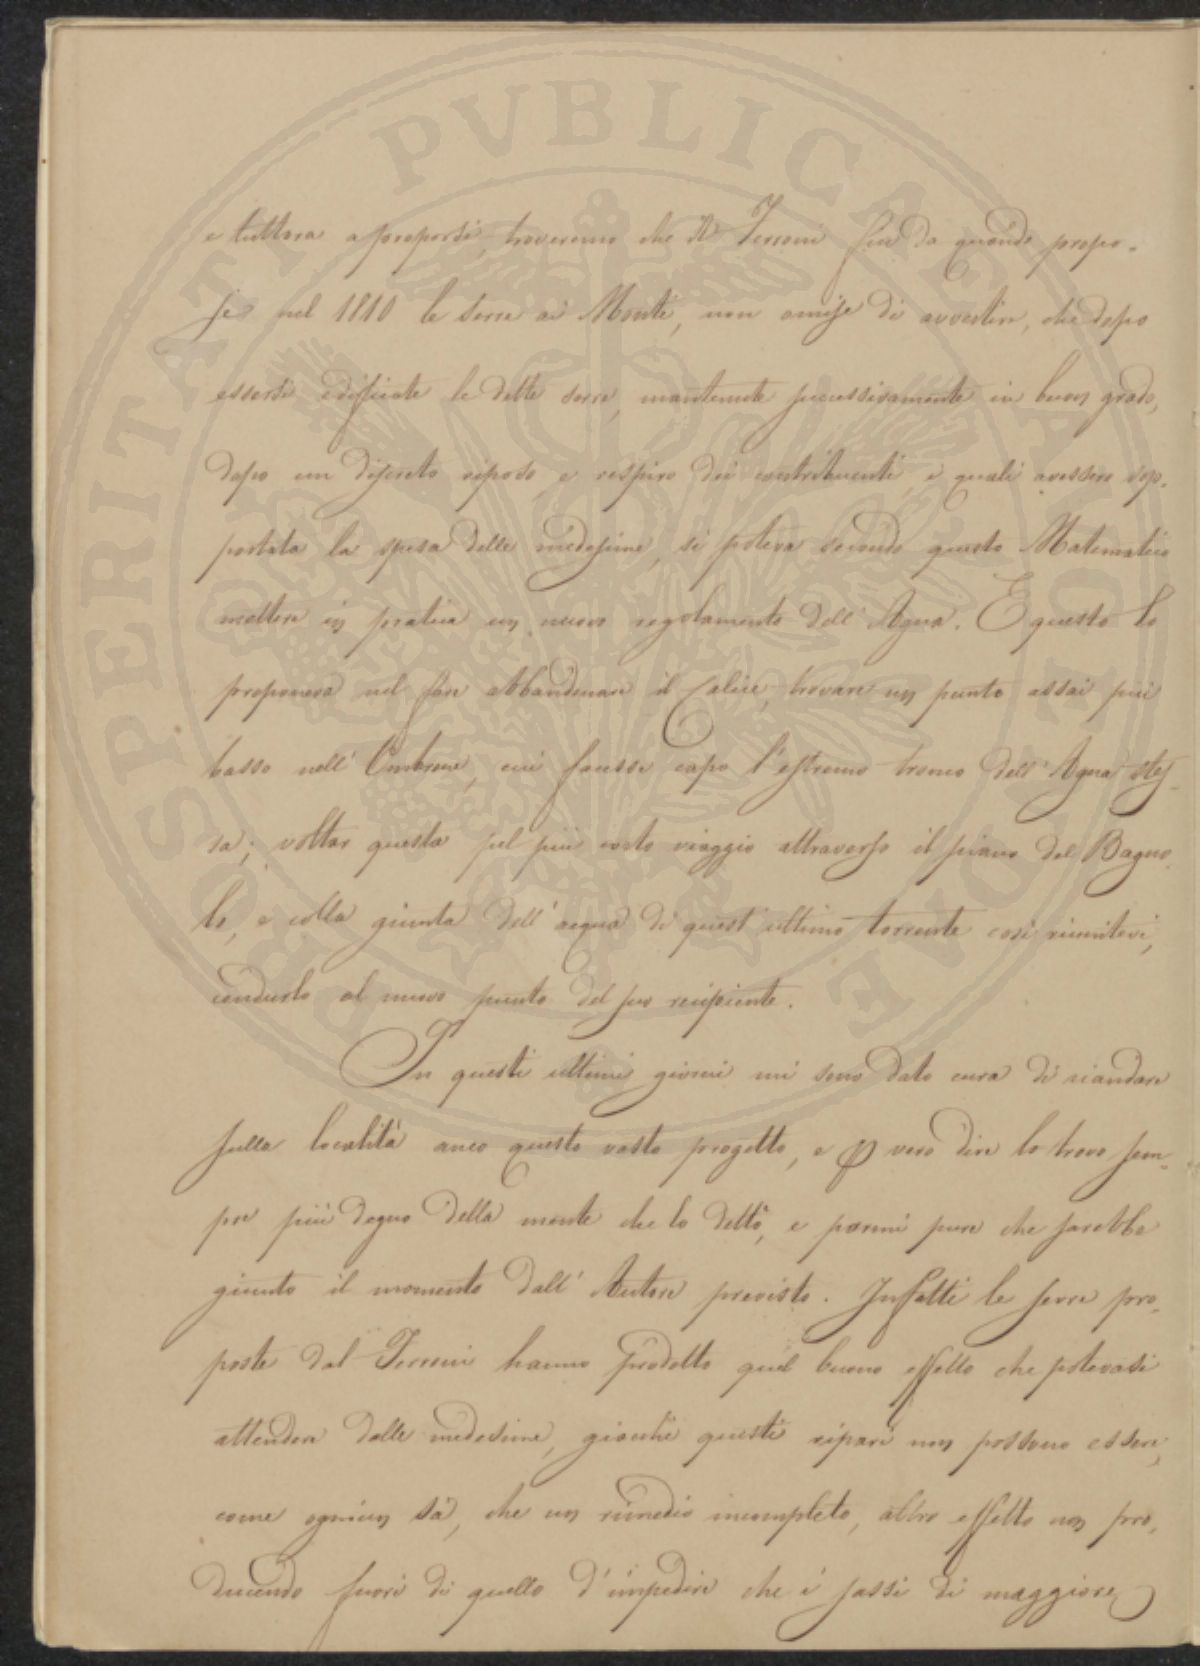 PROSPERITATI PVBLICAE AVGENDAE
e tuttora a proporsi, troveremo che il Ferroni fin da quando propo-
se nel 1810 le serre ai Monti, non omise di avvertire, che dopo
essersi edificate le dette serre, mantenute successivamente in buon grado,
dopo un discreto riposo, e respiro dei contribuenti, i quali avessero sop-
portata la spesa delle medesime, si poteva secondo questo Matematico
mettere in pratica un nuovo regolamento dell'Agna. E questo lo
proponeva nel fare abbandonare il Calice, trovare un punto assai più
basso nell'Ombrone, cui facesse capo l'estremo tronco dell'Agna stes-
sa; voltar questa pel più corto viaggio attraverso il piano del Bagno-
lo, e colla giunta dell'acqua di quest'ultimo torrente così riunitevi,
condurlo al nuovo punto del suo recipiente.
In questi ultimi giorni mi sono dato cura di riandare
sulla località anco questo vasto progetto, e p vero dire lo trovo sem-
pre più degno della mente che lo dettò, e parmi pure che sarebbe
giunto il momento dall'Autore previsto. Infatti le serre pro-
poste dal Ferroni hanno prodotto quel buono effetto che potevasi
attendere dalle medesime, giacchè questi ripari non possono essere,
come ognun sà, che un rimedio incompleto, altro effetto non pro-
ducendo fuori di quello d'impedire che i sassi di maggiore